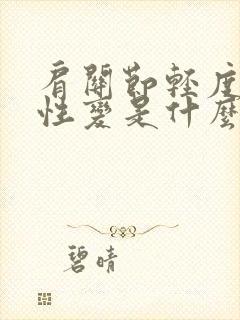 肩關節輕度
性變是什麼
碧晴